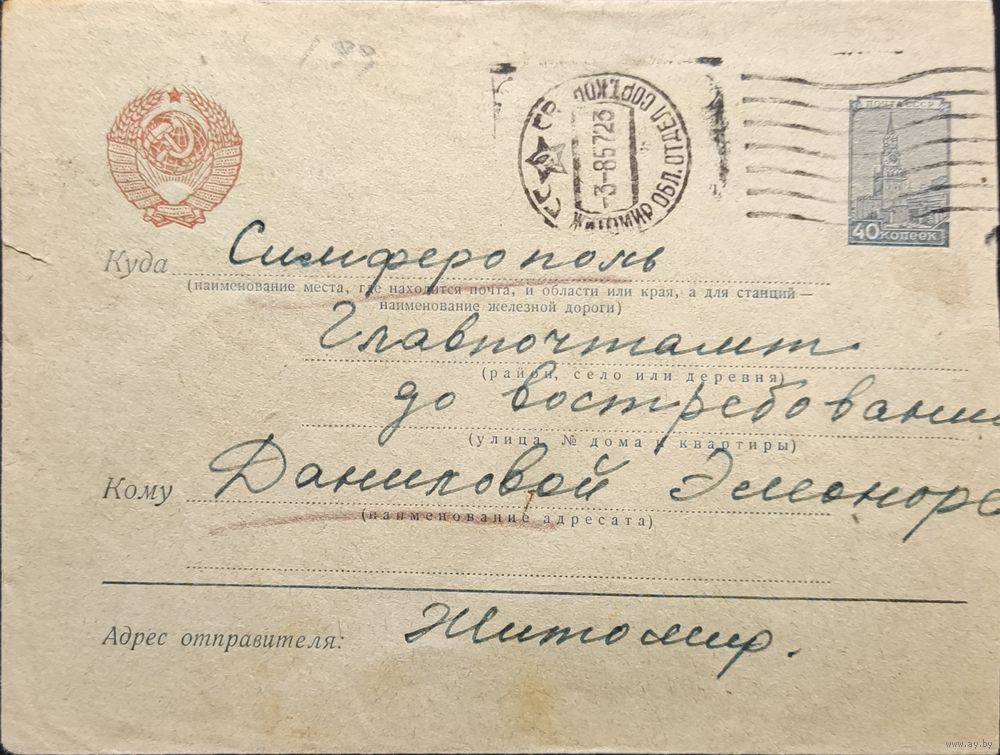 1.99
СССР
ЖИТОМИР ОБЛ. ОТДЕЛ СОРТ. КОР
-3-85723
ПОЧТА СССР
40 копеек
Куда Симферополь
(наименование места, где находится почта, и области или края, а для станций—
наименование железной дороги)
Главпочтамт
(район, село или деревня)
до востребовани
(улица, № дома и квартиры)
Кому Даниловой Элеоноре
(наименование адресата)
Адрес отправителя: Житомир.
www.ay.by